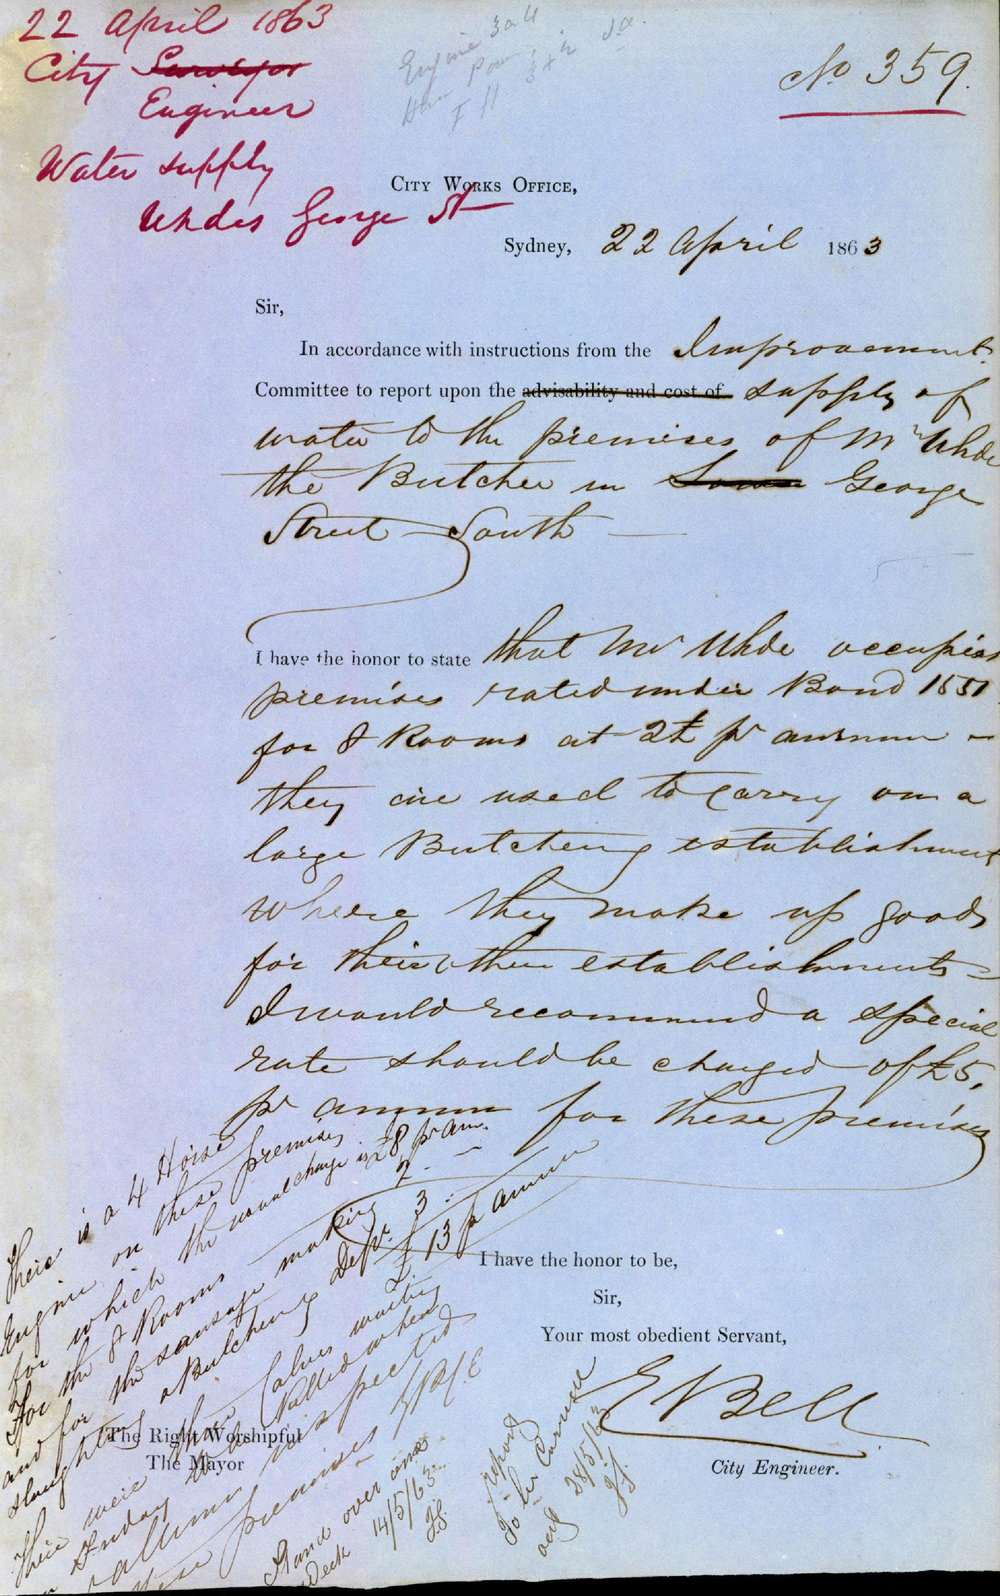 22 April 1863
City Surveyor
Engineer
Water supply
Uhdes George St
Engine
No 359.
City Works Office,
Sydney, 22 April 1863
Sir,
In accordance with instructions from the Improvement
Committee to report upon the advisability and cost of supply of
water to the premises of Mr Uhde
the Butcher in Lower George
Street South
I have the honor to state that Mr Uhde occupies
premises rated under Bond 1551
for 8 Rooms at 2£ pr annum
they are used to carry on a
large Butchering establishment
where they make up goods
for their other establishments
I would recommend a special
rate should be charged of £5,
pr annum for these premises
I have the honor to be,
Sir,
Your most obedient Servant,
E Bell
City Engineer.
The Right Worshipful
The Mayor
There is a 4 Horse
Engine on these premises
for which the usual charge is £8 pr an.
For the 8 Rooms 2
and for the sausage making
slaughtering & Butchering Depr. 3
£13 p annum
There were three Calves waiting
on Friday to be Killed when
inspected
these premises
Stand over one
Week 14/5/63
report
28/5/63